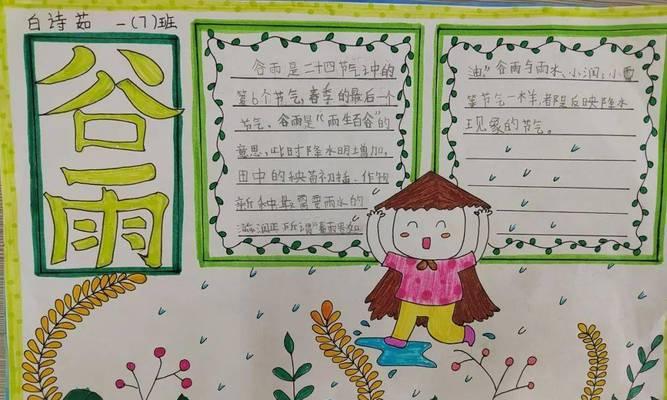 白诗茹 一(7)班
谷雨
谷雨是二十四节气中的
第6个节气,春季的最后一个
节气。谷雨是“雨生百谷”的
意思,此时降水明增加,
田中的秧苗初插、作物
新种最需要雨水的
滋润正所谓“春雨贵如
油”谷雨与雨水、小润、小雪
等节气一样,都是反映降水
现象的节气。